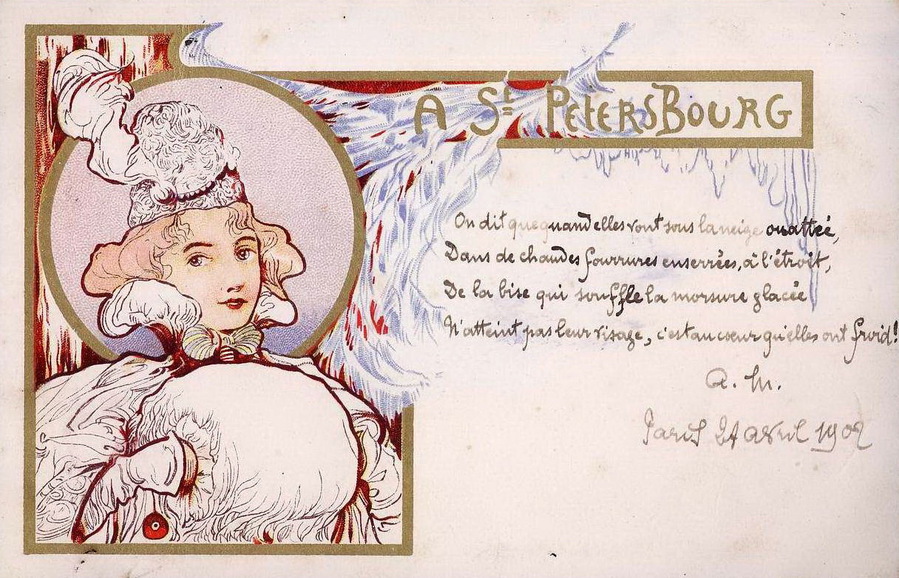 A St PETERSBOURG
On dit que quand elles vont sous la neige ouattée,
Dans de chaudes fourrures enserrées, à l'étroit,
De la bise qui souffle la morsure glacée
N'atteint pas leur visage, c'est au cœur qu'elles ont froid!
A. M.
Paris avril 1902